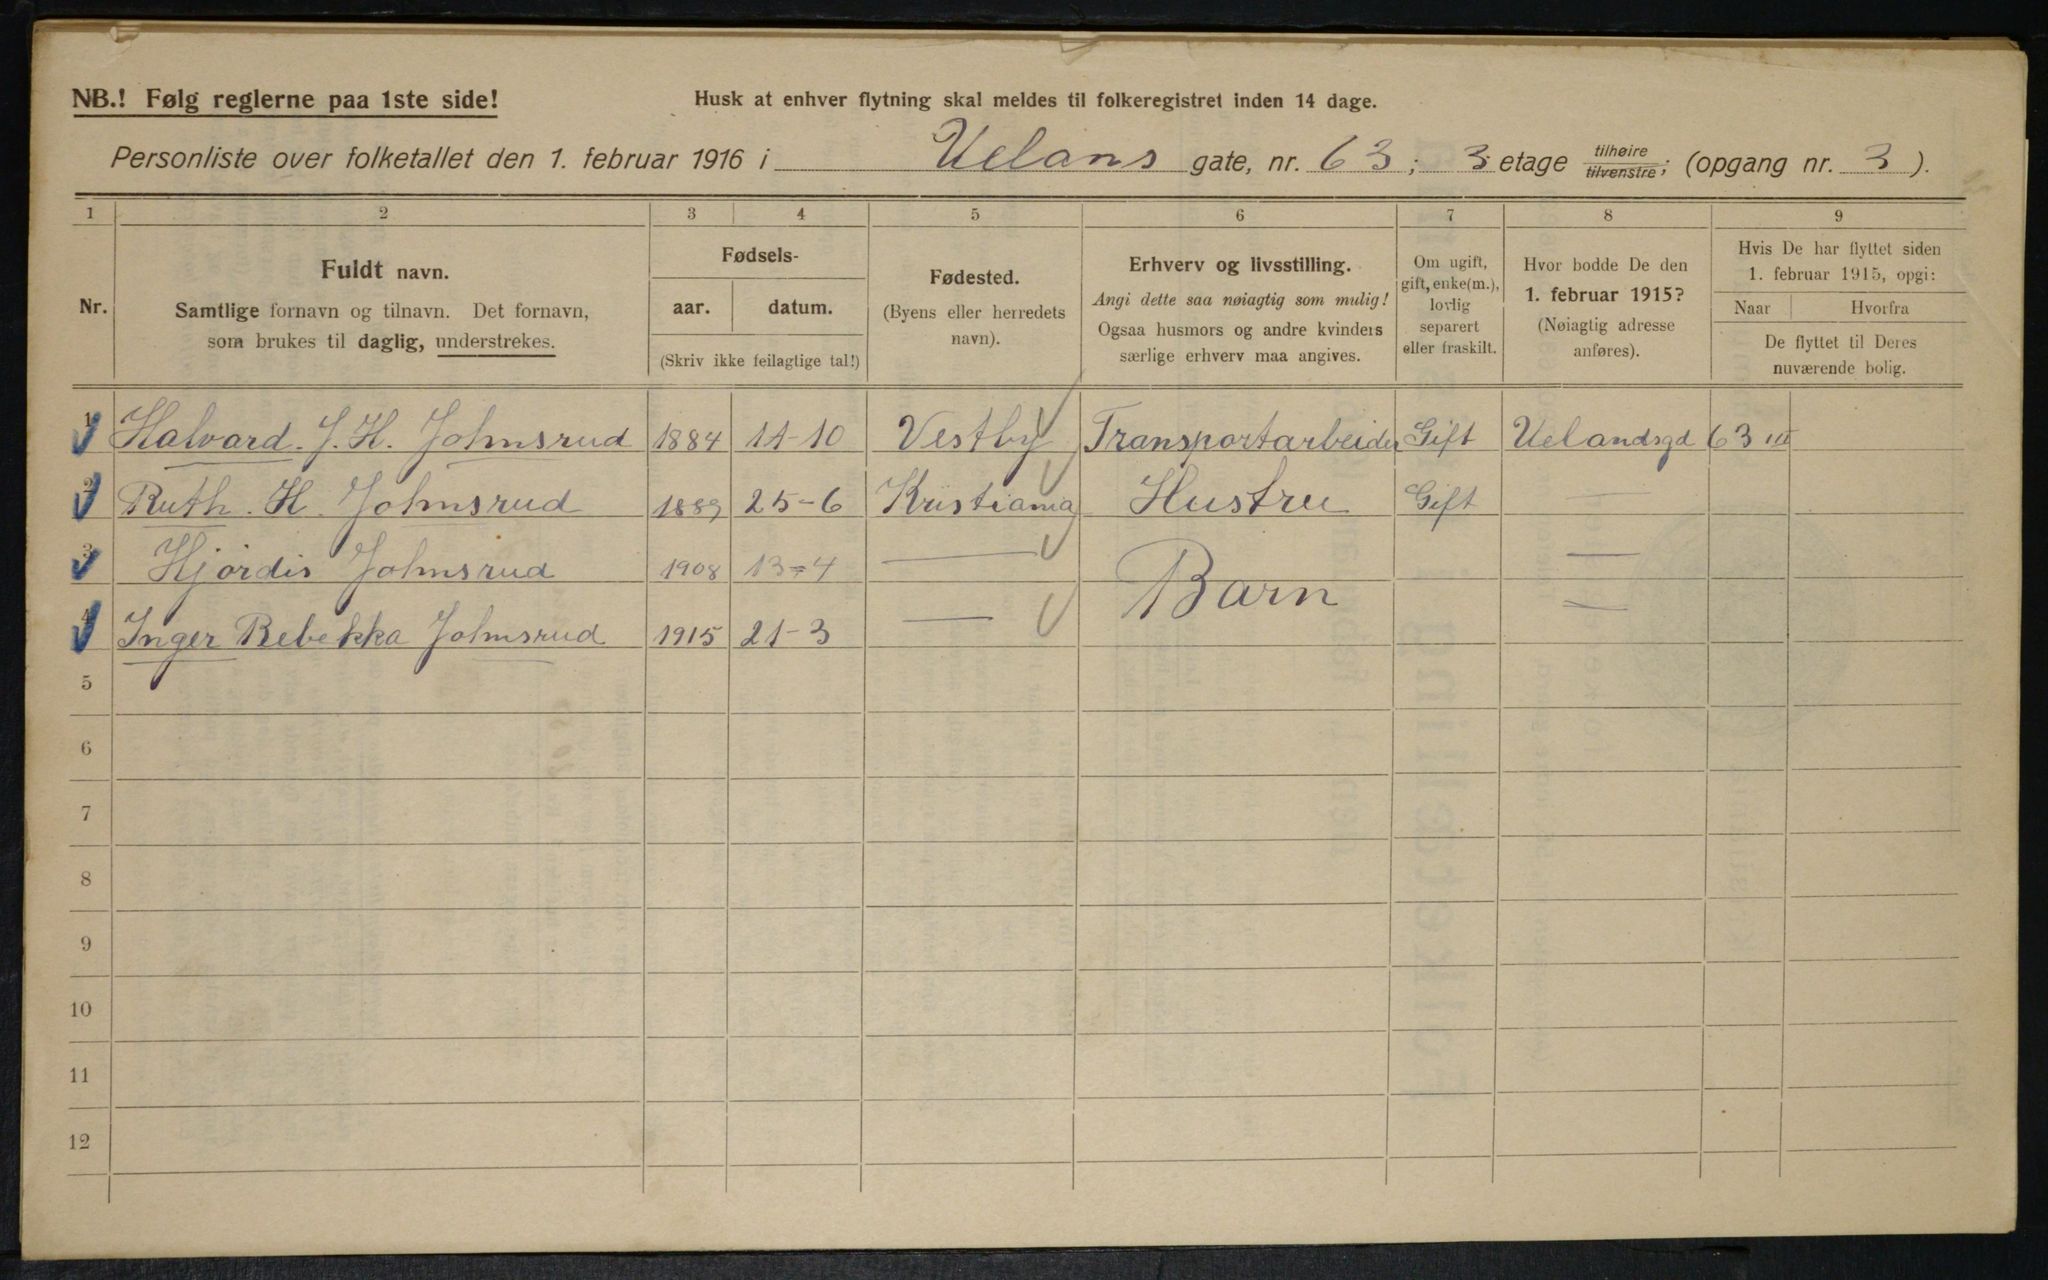 NB.! Følg reglerne paa 1ste side!
Husk at enhver flytning skal meldes til folkeregistret inden 14 dage.
Personliste over folketallet den 1. februar 1916 i Uelans gate, nr. 63; 3 etage tilhøire tilvenstre; (opgang nr. 3).
1 2 3 4 5 6 7 8 9
Nr.
Fuldt navn.
Samtlige fornavn og tilnavn. Det fornavn,
som brukes til daglig, understrekes.
Fødsels-
aar. datum.
(Skriv ikke feilagtige tal!)
Fødested.
(Byens eller herredets
navn).
Erhverv og livsstilling.
Angi dette saa nøiagtig som mulig!
Ogsaa husmors og andre kvinders
særlige erhverv maa angives.
Om ugift,
gift, enke(m.),
lovlig
separert
eller fraskilt.
Hvor bodde De den
1. februar 1915?
(Nøiagtig adresse
anføres).
Hvis De har flyttet siden
1. februar 1915, opgi:
Naar Hvorfra
De flyttet til Deres
nuværende bolig.
1 Halvard. J. H. Johnsrud 1884 11-10 Vestby Transportarbeider Gift Uelandsgd 63 III
2 Ruth. H. Johnsrud 1889 25-6 Kristiania Hustru Gift —
3 Hjördis Johnsrud 1908 13-4 — Barn —
4 Inger Rebekka Johnsrud 1915 21-3 — —
5
6
7
8
9
10
11
12